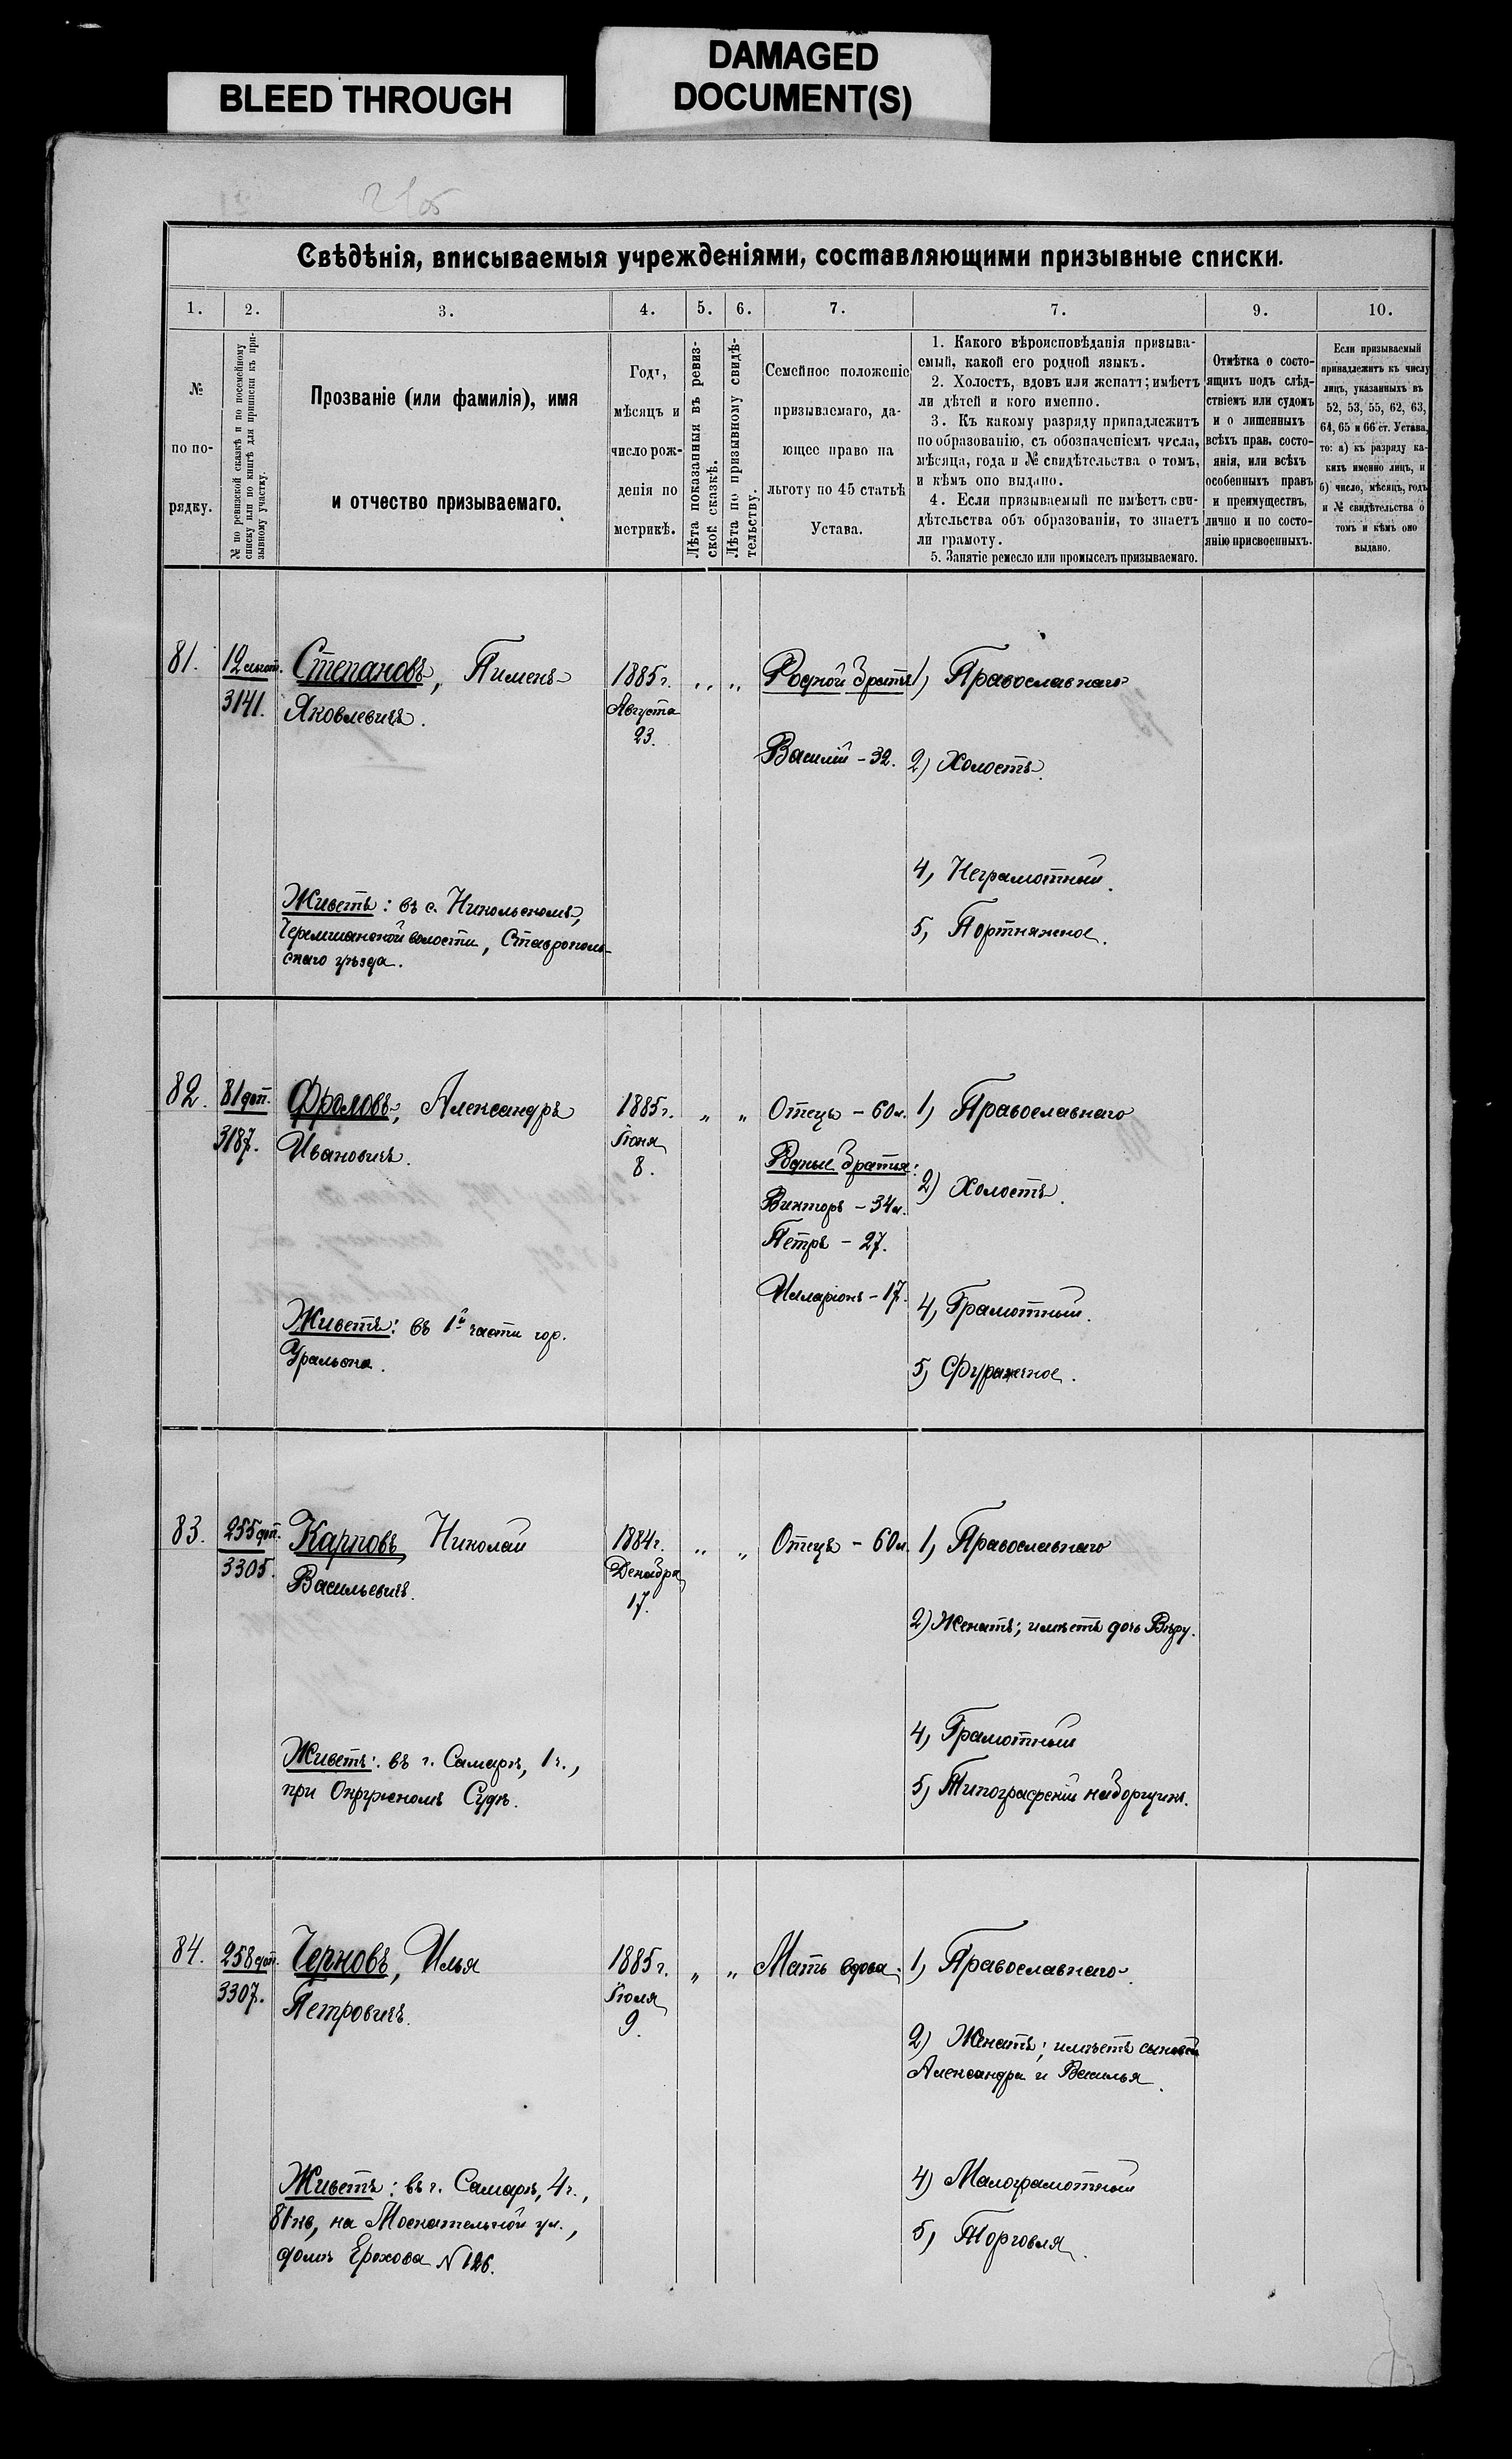 BLEED THROUGH
DAMAGED
DOCUMENT(S)
Свѣдѣнія, вписываемыя учрежденіями, составляющими призывные списки.
1. 2. 3. 4. 5. 6. 7. 7. 9. 10.
№
по по-
рядку.
№ по ревизской сказкѣ и по посемейному
списку или по книгѣ для приписки къ при-
зывному участку.
Прозваніе (или фамилія), имя
и отчество призываемаго.
Годъ,
мѣсяцъ и
число рож-
денія по
метрикѣ.
Лѣта показанныя въ ревиз-
ской сказкѣ.
Лѣта по призывному свидѣ-
тельству.
Семейное положеніе
призываемаго, да-
ющее право на
льготу по 45 статьѣ
Устава.
1. Какого вѣроисповѣданія призыва-
емый, какой его родной языкъ.
2. Холостъ, вдовъ или женатъ; имѣетъ
ли дѣтей и кого именно.
3. Къ какому разряду принадлежитъ
по образованію, съ обозначеніемъ числа,
мѣсяца, года и № свидѣтельства о томъ,
и кѣмъ оно выдано.
4. Если призываемый не имѣетъ сви-
дѣтельства объ образованіи, то знаетъ
ли грамоту.
5. Занятіе ремесло или промыселъ призываемаго.
Отмѣтка о состо-
ящихъ подъ слѣд-
ствіемъ или судомъ
и о лишенныхъ
всѣхъ прав. состо-
янія, или всѣхъ
особенныхъ правъ
и преимуществъ,
лично и по состо-
янію присвоенныхъ.
Если призываемый
принадлежитъ къ числу
лицъ, указанныхъ въ
52, 53, 55, 62, 63,
64, 65 и 66 ст. Устава,
то: а) къ разряду ка-
кихъ именно лицъ, и
б) число, мѣсяцъ, годъ
и № свидѣтельства о
томъ и кѣмъ оно
выдано.
81.
12
3141.
Степановъ, Пименъ
Яковлевичъ.
Живетъ: въ с. Никольскомъ,
Черемшанской волости, Ставрополь-
скаго уѣзда.
1885 г.
Августа
23.
„ „
Родной братъ
Василій - 32.
1) Православнаго
2) Холостъ.
4) Неграмотный.
5) Портняжное.
82.
81 доп.
3187.
Фроловъ, Александръ
Ивановичъ.
Живетъ: въ 1й части гор.
Уральска.
1885 г.
Іюня
8.
„ „
Отецъ - 60 л.
Родные братья:
Викторъ - 34 л.
Петръ - 27.
Илларіонъ - 17.
1) Православнаго
2) Холостъ.
4) Грамотный.
5) Фуражечное.
83.
255 доп.
3305.
Карповъ Николай
Васильевичъ.
Живетъ: въ г. Самарѣ, 1 ч.,
при Окружномъ Судѣ.
1884 г.
Декабря
17.
„ „
Отецъ - 60 л.
1) Православнаго
2) Женатъ; имѣетъ дочь Вѣру.
4) Грамотный
5) Типографскій наборщикъ.
84.
258 доп.
3307.
Черновъ, Илья
Петровичъ.
Живетъ: въ г. Самарѣ, 4 ч.,
81 кв, на Москательной ул.,
домъ Ерохова № 126.
1885 г.
Іюля
9.
„ „
Мать вдова.
1) Православнаго.
2) Женатъ; имѣетъ сыновей
Александра и Василья.
4) Малограмотный
5) Торговля.